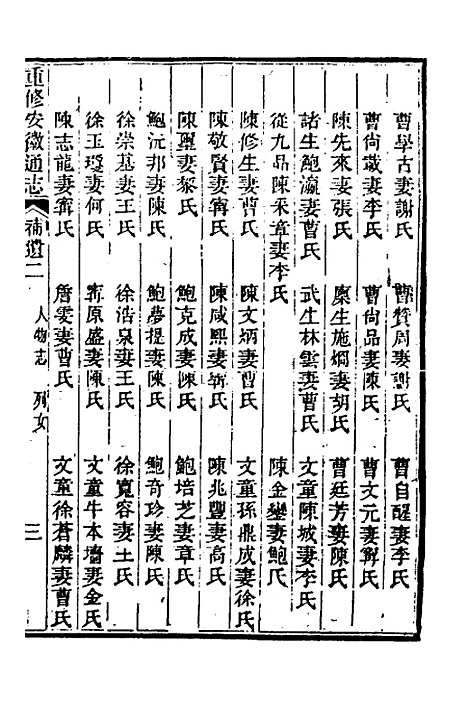 曹學古妻謝氏 曹贊周妻謝氏 曹自醒妻李氏
曹尙箴妻李氏 曹尙品妻陳氏 曹文元妻甯氏
陳先來妻張氏 廩生施燗妻胡氏 曹廷芳妻陳氏
諸生鮑瀛妻曹氏 武生林雲妻曹氏 文童陳城妻李氏
從九品陳采章妻李氏 陳金鑾妻鮑氏
陳修生妻曹氏 陳文炳妻曹氏 文童孫鼎成妻徐氏
陳敬賢妻甯氏 陳咸熙妻甯氏 陳兆豐妻高氏
陳璽妻黎氏 鮑克成妻陳氏 鮑培芝妻章氏
鮑沅邦妻陳氏 鮑夢提妻陳氏 鮑奇珍妻陳氏
徐崇基妻王氏 徐浩泉妻王氏 徐寬容妻王氏
徐玉瓊妻何氏 甯原盛妻陳氏 文童牛本墻妻金氏
陳志龍妻甯氏 詹雯妻曹氏 文童徐蒼麟妻曹氏
重修安徽通志 補遺二 人物志 列女 三